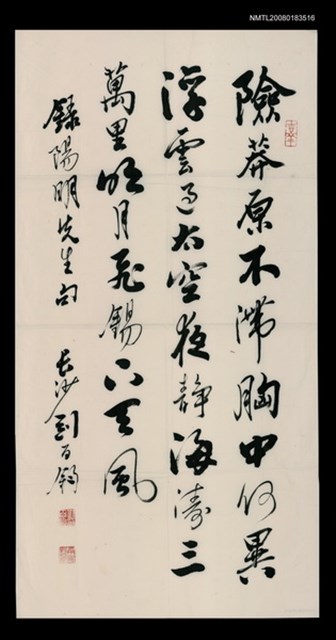 NMTL20080183516
險莽原不滯胸中何異
浮雲過太空夜靜海濤三
萬里明月飛錫下天風
錄陽明先生句 長沙劉百鈞